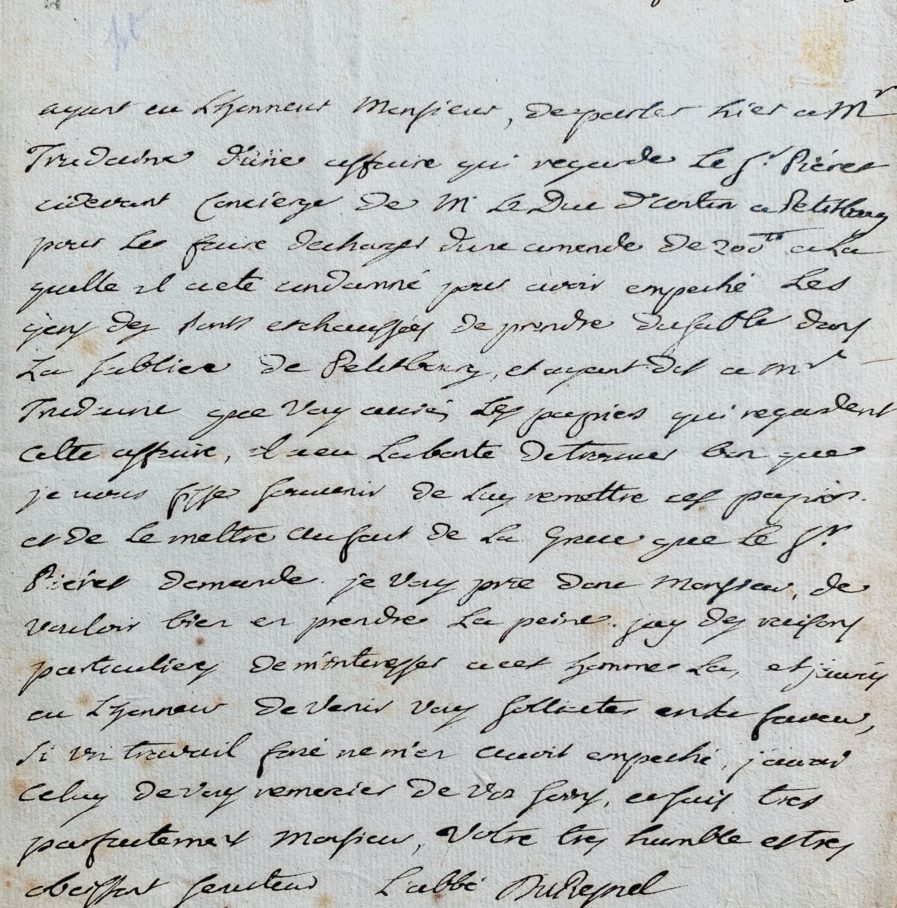 ayant eu Lhonneur Monsieur, de parler hier a Mr
Trudaine d'une affaire qui regarde Le Sr Piéret
cidevant Concierge de M. Le Duc d'Antin a Petitbourg
pour Les faire decharger d'une amende de 200tt a La
quelle il a eté condanné pour avoir empeché Les
gens des ponts et chaussées de prendre du sable dans
La Sabliere de Petitbourg, et ayant dit a Mr
Trudaine que vous aviés Les papiers qui regardent
cette affaire, il a eu La bonté de trouver bon que
je vous fisse souvenir de Luy remettre ces papiers.
et de Le mettre au fait de La Grace que Le Sr
Piéret demande. je vous prie donc Monsieur, de
vouloir bien en prendre La peine. jay des raisons
particulieres de m'interesser a cet homme La, et j'aurois
eu Lhonneur de venir vous solliciter en sa faveur,
si un travail forcé ne m'en avoit empeché, j'aurai
celuy de vous remercier de vos soins, et suis tres
parfaitement Monsieur, Votre tres humble et tres
obeissant serviteur L'abbé DuResnel